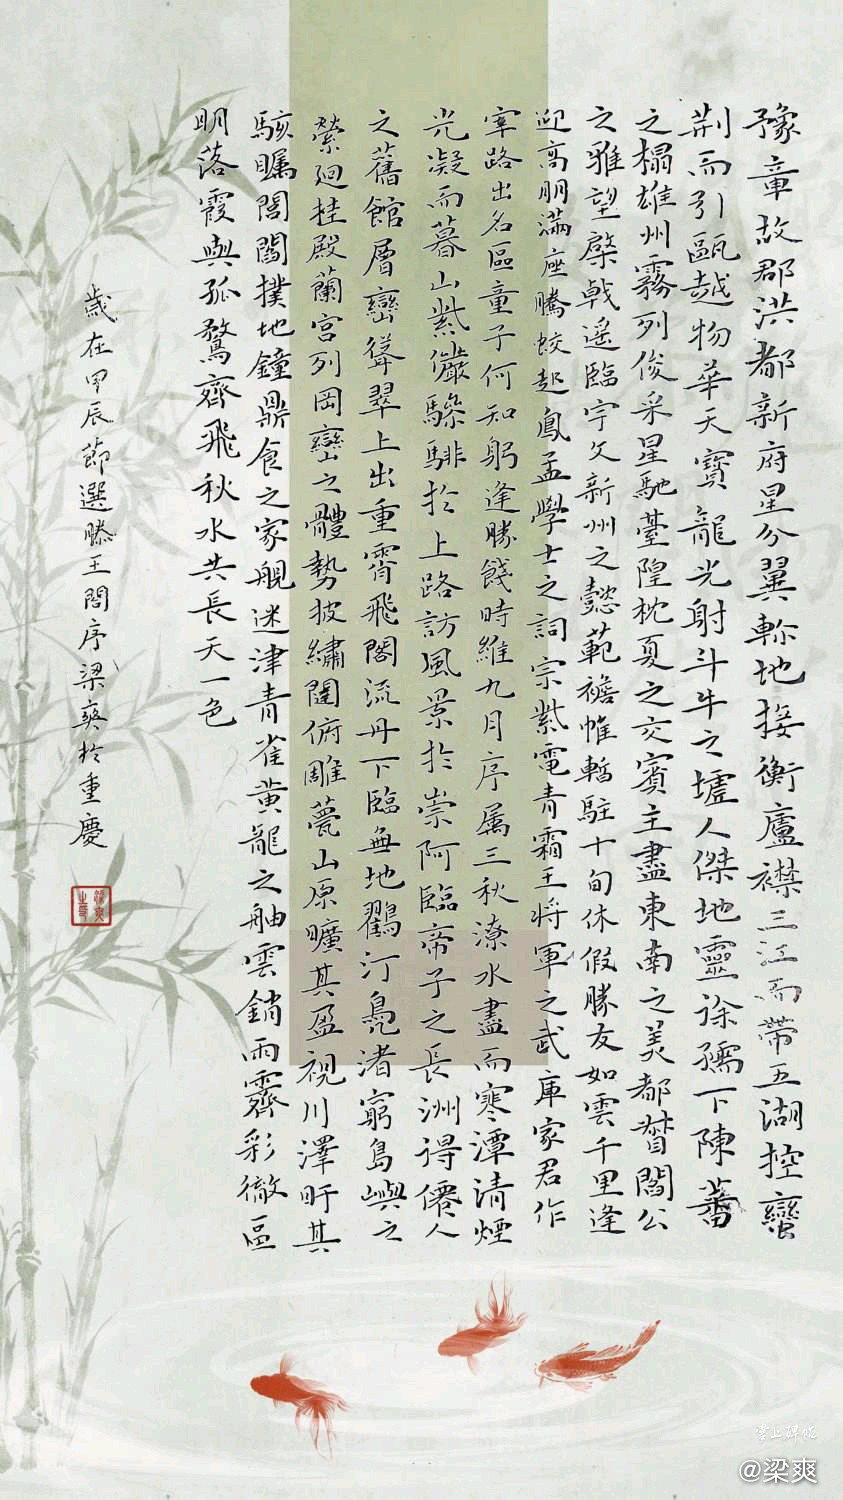 豫章故郡洪都新府星分翼軫地接衡廬襟三江而帶五湖控蠻
荆而引甌越物華天寶龍光射斗牛之墟人傑地靈徐孺下陳蕃
之榻雄州霧列俊采星馳臺隍枕夏之交賓主盡東南之美都督閻公
之雅望棨戟遥臨宇文新州之懿範襜帷暫駐十旬休假勝友如雲千里逢
迎高朋滿座騰蛟起鳳孟學士之詞宗紫電青霜王將軍之武庫家君作
宰路出名區童子何知躬逢勝餞時維九月序屬三秋潦水盡而寒潭清煙
光凝而暮山紫儼驂騑於上路訪風景於崇阿臨帝子之長洲得僊人
之舊館層巒聳翠上出重霄飛閣流丹下臨無地鶴汀鳧渚窮島嶼之
縈迴桂殿蘭宮列岡巒之體勢披繡闥俯雕甍山原曠其盈視川澤盱其
駭矚閭閻撲地鐘鼎食之家舰迷津青雀黄龍之舳雲銷雨霽彩徹區
明落霞與孤鶩齊飛秋水共長天一色
歲在甲辰節選滕王閣序梁爽於重慶
@梁爽